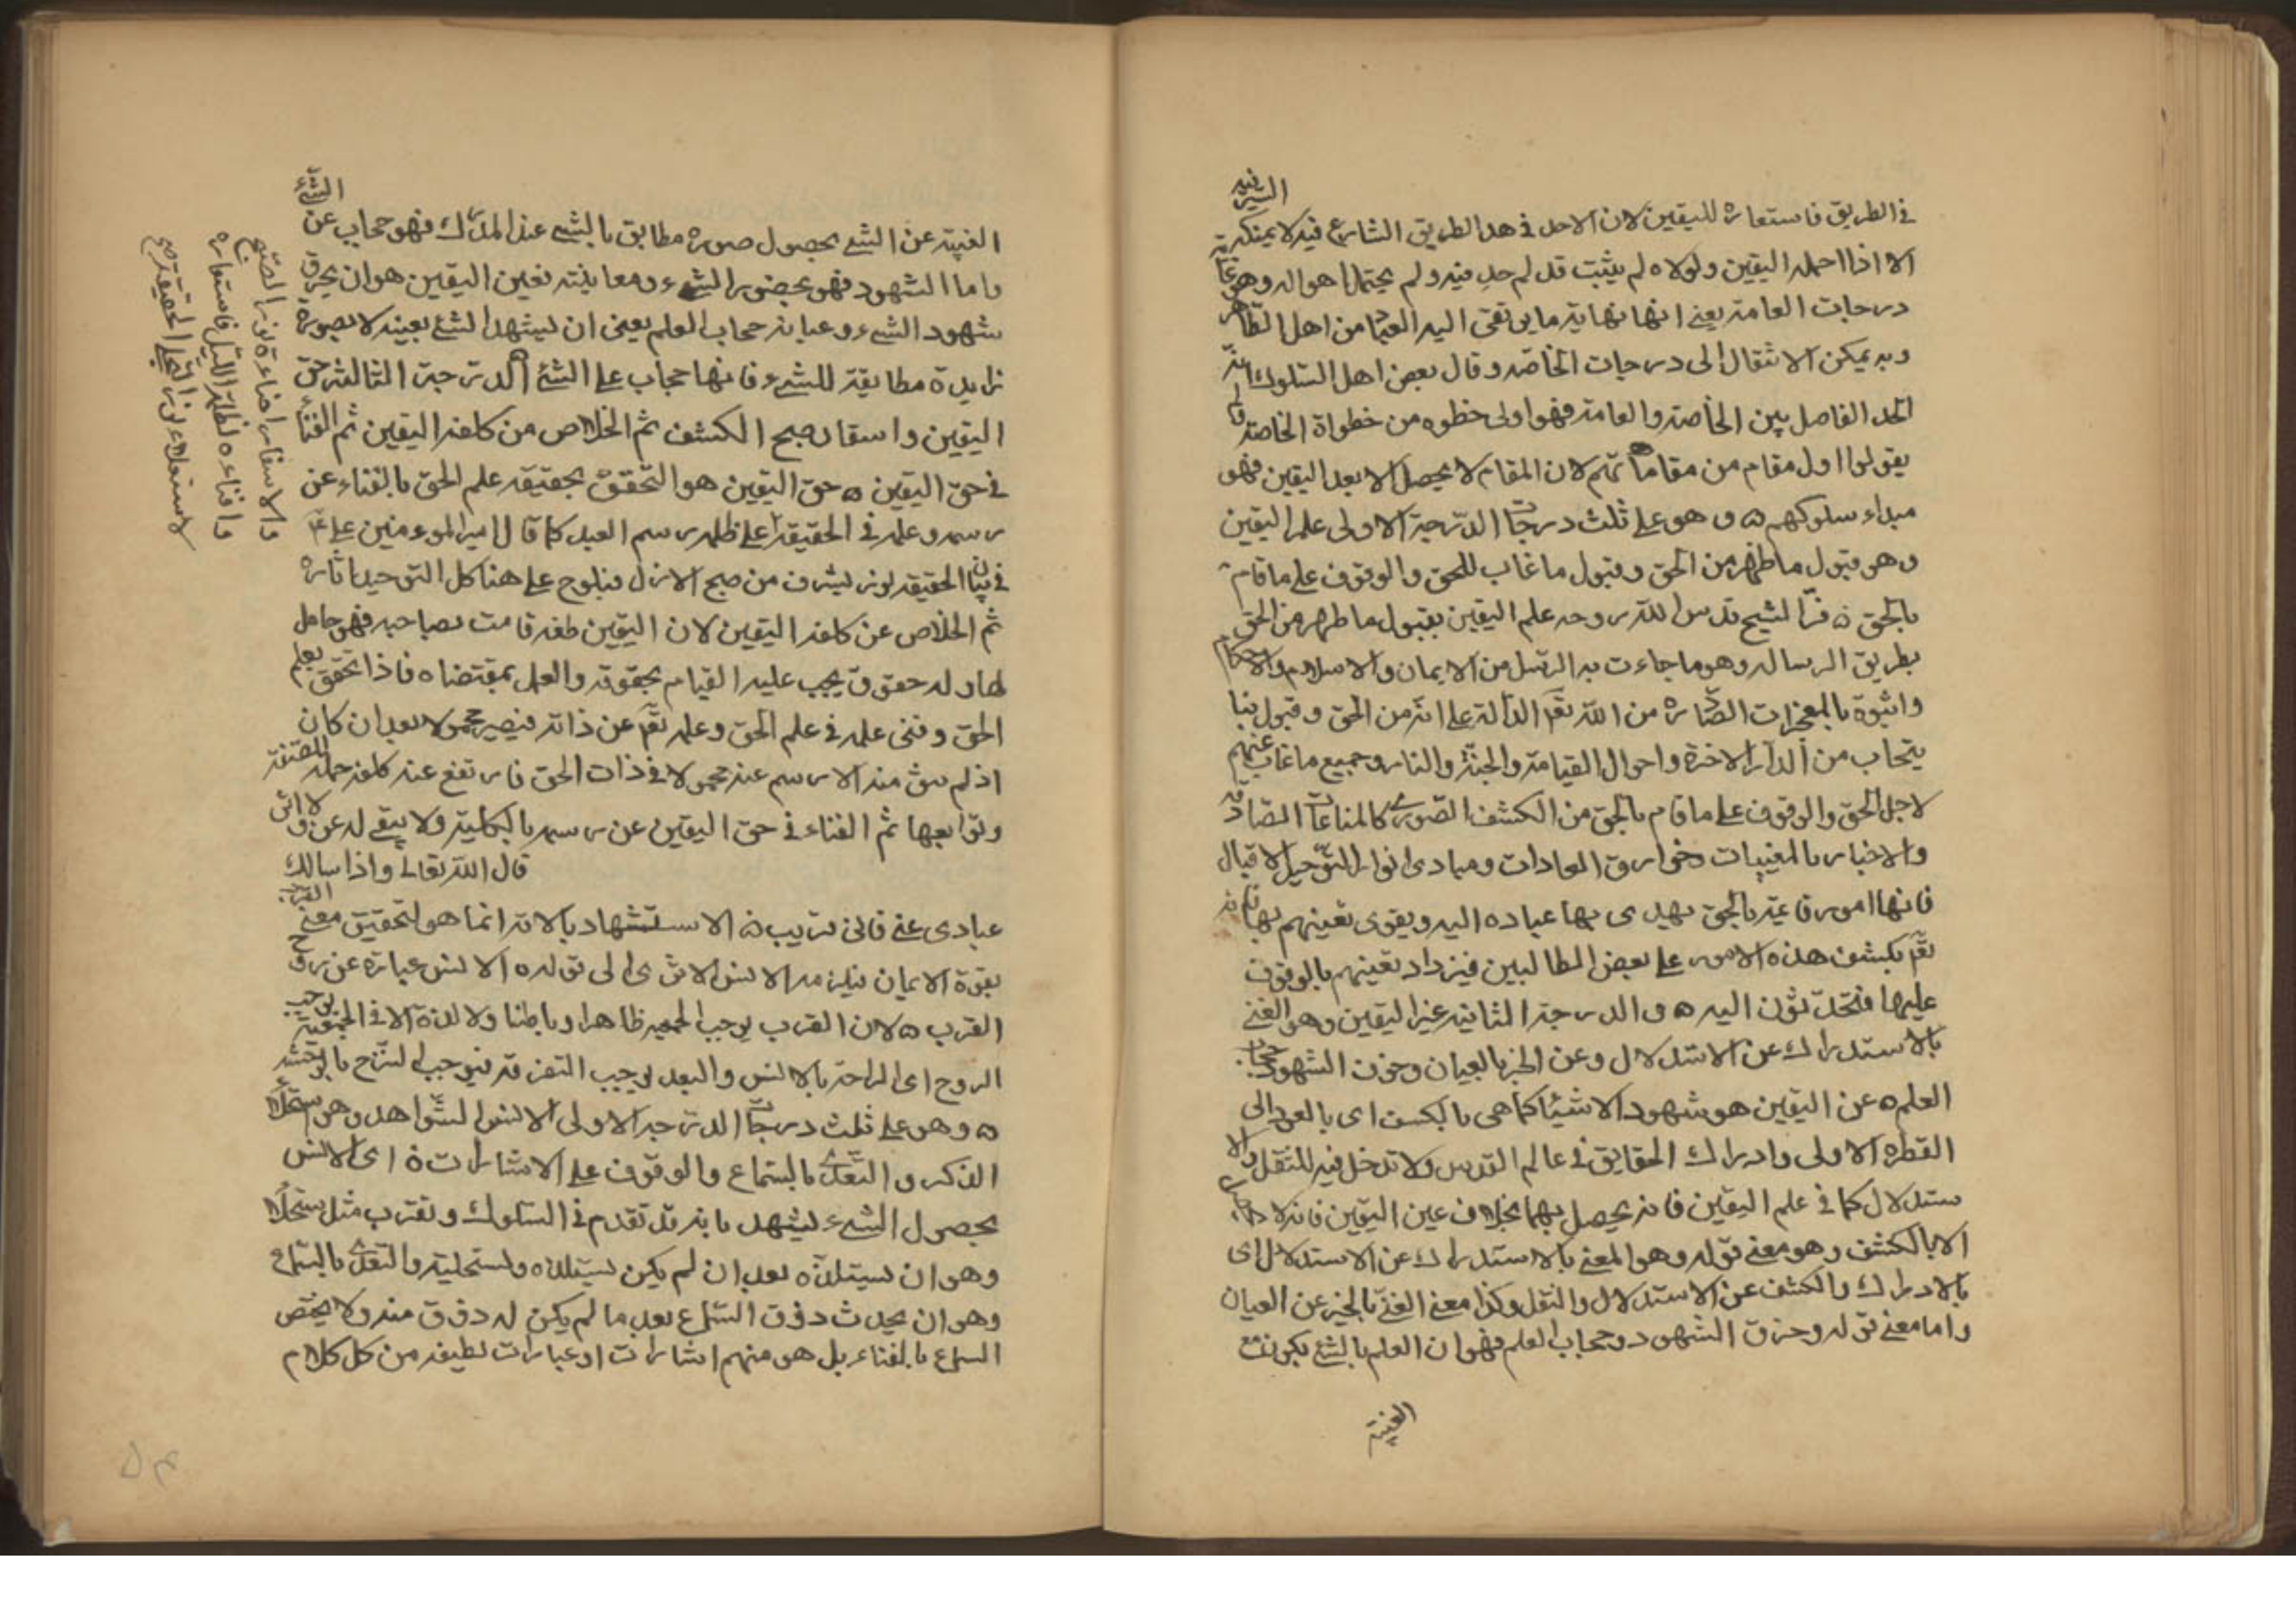 في الطريق فاستعاره لليقين لان الاخذ في هذا الطريق الشارع فيه لا يمكنه السير فيه
الا اذا حمله اليقين ولولاه لم يثبت قدم احد فيه ولم يحتمل اهواله وهو غاية
درجات العامة يعني انها نهاية ما يرتقى اليه العباد من اهل الظاهر
وبه يمكن الانتقال الى درجات الخاصه وقال بعض اهل السلوك انه
الحد الفاصل بين الخاصه والعامه فهو اولى خطوه من خطواة الخاصه
يقولوا اول مقام من مقاماتهم لان المقام لا يحصل الا بعد اليقين فهو
مبداء سلوكهم ه وهو على ثلث درجات الدرجة الاولى علم اليقين
وهو قبول ما ظهر من الحق وقبول ما غاب للحق والوقوف على ما قام
بالحق ه الشيخ قدس الله روحه علم اليقين بقبول ما ظهر من الحق
بطريق الرساله وهو ما جاءت به الرسل من الايمان والاسلام والاحكام
بالمعجزات الصادره من الله تعم الدالة على انه من الحق وقبول
من الدار الاخرة واحوال القيامة والجنة والنار وجميع ما غاب عنهم
لاجل الحق والوقوف على ما قام بالحق من الكشف الصورى كالمنامات الصادقه
والاخبار بالمغيبات وخوارق العادات ومبادى انوار التوحيد
فانها امور قائمة بالحق يهدى بها عباده اليه ويقوى يقينهم بها فانه
تعم يكشف هذه الامور على بعض الطالبين فيزداد يقينهم بالوقوف
عليها اليه ه والدرجة الثانيه عين اليقين وهو الغنى
بالاستدراك عن الاستدلال وعن الخبر بالعيان وخرق الشهود حجاب
العلم ه عين اليقين هو شهود الاشياء كما هى بالكشف اى بالعود الى
الفطره الاولى وادراك الحقايق في عالم القدس ولا تدخل فيه للنقل والا
ستدلال كما في علم اليقين فانه يحصل بهما بخلاف عين اليقين فانه لا
الا بالكشف وهو معنى قوله وهو المغنى بالاستدراك عن الاستدلال اى
بالادراك والكشف عن الاستدلال والنقل وكذا معنى الغنى بالخبر عن العيان
واما معنى قوله وخرق الشهود وحجاب العلم فهو ان العلم بالشئ يكون مع
الغيبة
الغيبة عن الشئ بحصول صورة مطابق بالشئ عند المدرك فهو حجاب عن الشئ
واما الشهود فهو بحضور الشئ ومعاينته فعين اليقين هو ان يخرق
شهود الشئ وعيانه حجاب العلم يعنى ان يشهد الشئ بعينه لا بصورة
زايدة مطابقة للشئ فانها حجاب على الشئ الدرجة الثالثة حق
اليقين واسفار صبح الكشف ثم الخلاص من كلفة اليقين ثم الفناء
في حق اليقين ه حق اليقين هو التحقق بحقيقة علم الحق بالفناء عن
رسمه وعلمه في الحقيقة على ظلمة رسم العبد كما قال امير المومنين على ع
في بيان الحقيقه نور يشرق من صبح الازل فيلوح على هياكل التوحيد اثاره
ثم الخلاص عن كلفة اليقين لان اليقين صفة قامت بصاحبه فهو حامل
لها وله حقوق يجب عليه القيام بحقوقه والعمل بمقتضاه فاذا تحقق بعلم
الحق وفنى علمه في علم الحق وعلمه تعم عن ذاته فيصير محمولا بعد ان كان
اذ لم يبق منه الا رسم عنه محمولا في ذات الحق فارتفع عنه كلفة حمله للصفة
وتوابعها ثم الفناء في حق اليقين عن رسمه بالكلية ولا يبقى له عين ولا اثر
قال الله تعالى واذا سالك
عبادى عنى فانى قريب ه الاستشهاد بالاية انما هو لتحقيق معنى القرب
بقوة الايمان فيلزمه الانس الا ترى الى قوله ه الانس عبارة عن روح
القرب ه لان القرب يوجب الجمعيه ظاهرا وباطنا ولا لذة الا في الجمعية يوجب
الروح اى الراحة بالانس والبعد يوجب التفرقة فيوجب
ه وهو على ثلث درجات الدرجة الاولى الانس بالشواهد وهو استحلاء
الذكر والتغذى بالسماع والوقوف على الاشارات ه اى الانس
بحصول الشئ يشهد بانه قد تقدم في السلوك وتقرب مثل استحلاء
وهو ان يستلذه بعد ان لم يكن يستلذه ويستحليه والتغذى بالسماع
وهو ان يحدث ذوق السماع بعد ما لم يكن له ذوق منه ولا يختص
السماع بالغناء بل هو منهم اشارات او عبارات لطيفه من كل كلام
والاسفار اضاءة نور الصبح
وافناءه لظلمة الليل فاستعاره
لاستعلاء نور التجلى الحقيقة